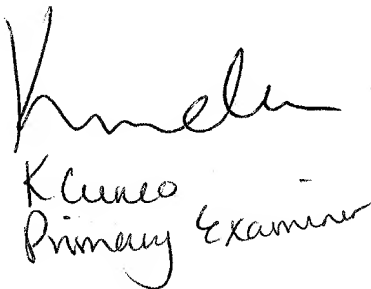 K Cuneo
Primary Examiner